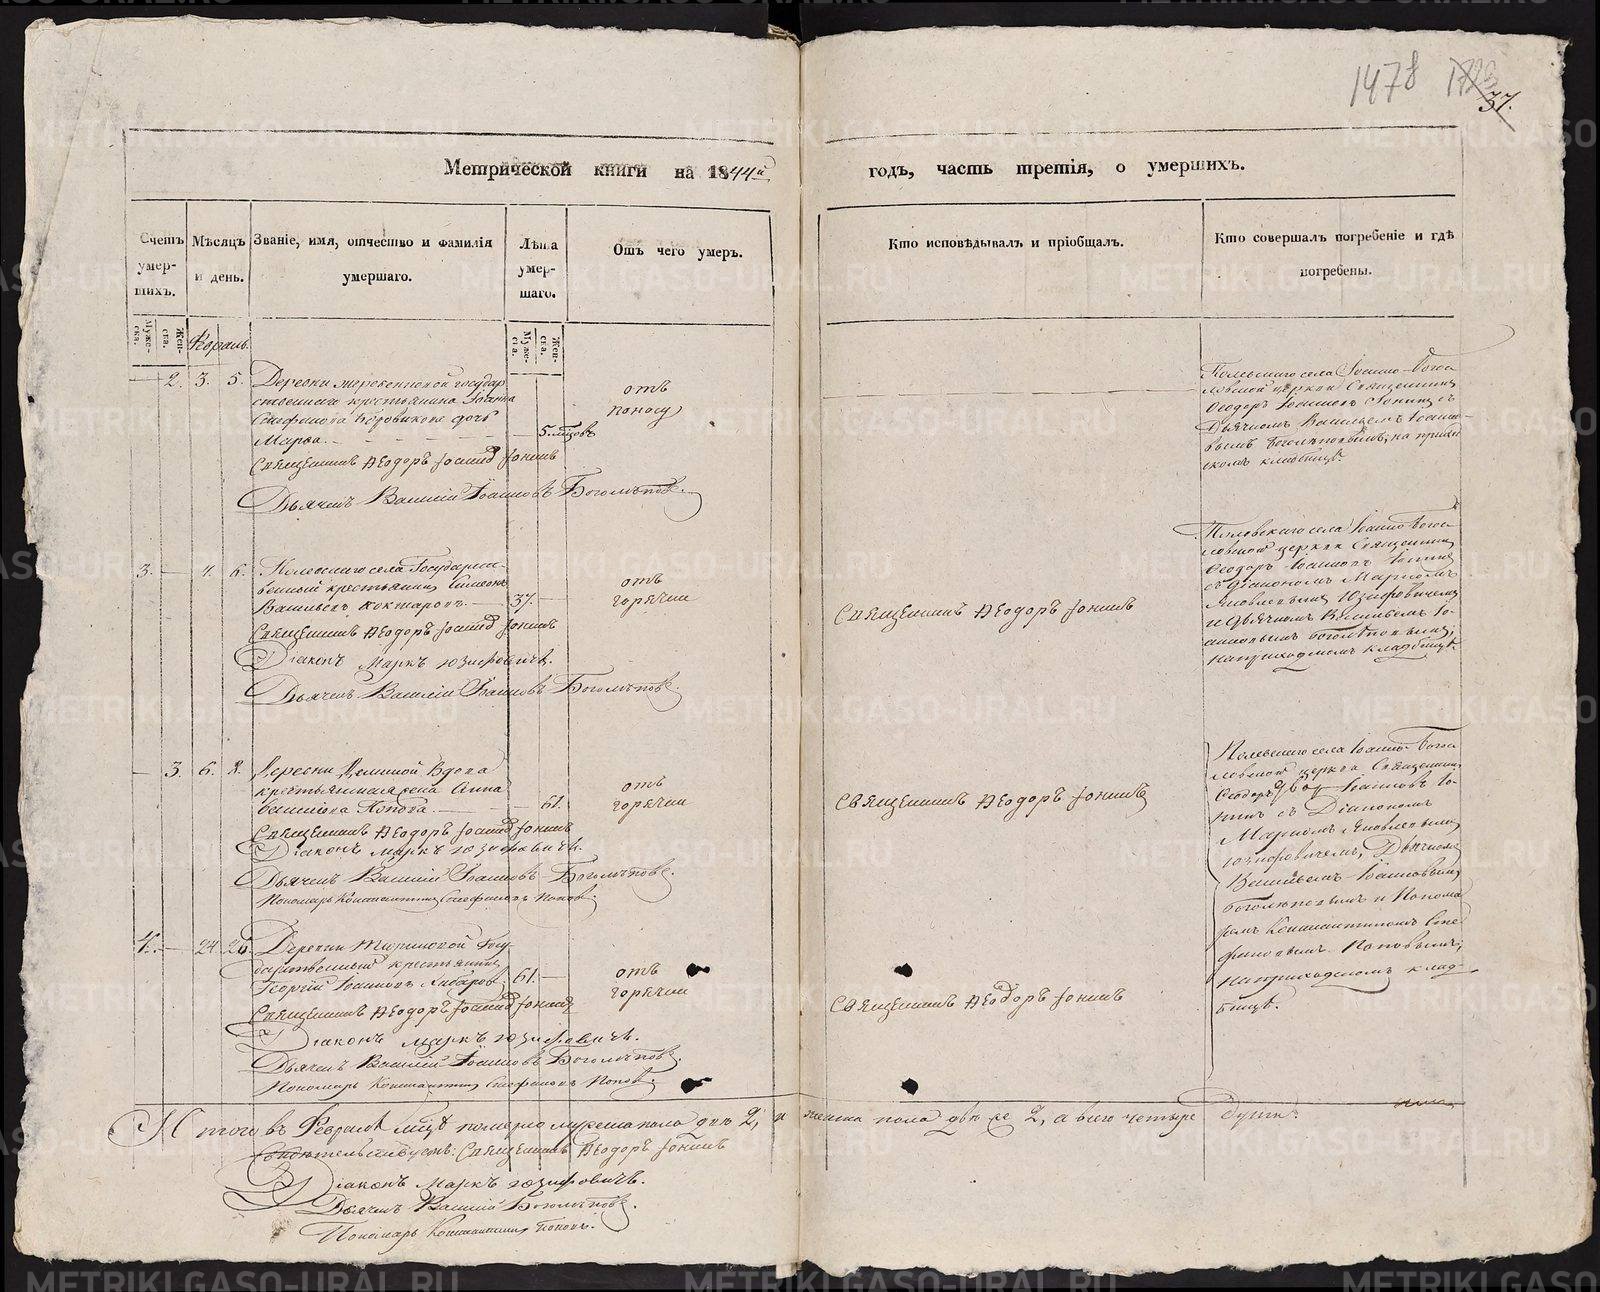 1478
37.
Метрической книги на 1844й
годъ, часть третія, о умершихъ.
Счетъ умер-шихъ.
Мѣсяцъ и день.
Званіе, имя, отчество и фамилія умершаго.
Лѣта умер-шаго.
Отъ чего умеръ.
Кто исповѣдывалъ и пріобщалъ.
Кто совершалъ погребеніе и гдѣ погребены.
Муже-ска.
Жен-ска.
Муже-ска.
Жен-ска.
2. 3. 5. Деревни государ
ственнаго крестьянина Іоанна
Стефанова Боровикова дочь
Марѳа.
5. мѣсяцовъ
отъ
поносу
Священникъ Ѳеодоръ Іоанновъ Іонинъ
Дьячекъ Василій Іоанновъ Боголѣповъ.
села Іоанно-Богос
ловской церкви Священникъ
Ѳеодоръ Іоанновъ Іонинъ съ
Дьячкомъ Васильемъ Іоанно-
вымъ Боголѣповымъ, на приход
скомъ кладбищѣ.
3. 4. 6. села Государст
венный крестьянинъ Симеонъ
Васильевъ
37.
отъ
горячки
Священникъ Ѳеодоръ Іоанновъ Іонинъ
Діаконъ Маркъ Юзифовичъ.
Дьячекъ Василій Іоанновъ Боголѣповъ.
Священникъ Ѳеодоръ Іонинъ
села Іоанно Богос
ловской церкви Священникъ
Ѳеодоръ Іоанновъ Іонинъ
съ Діакономъ Маркомъ
Яковлевымъ Юзифовичемъ
и Дьячкомъ Васильемъ Іо-
анновымъ Боголѣповымъ,
на приходскомъ кладбищѣ.
3. 6. 8. Деревни Вдова
крестьянская жена Анна
Попова.
61.
отъ
горячки
Священникъ Ѳеодоръ Іоанновъ Іонинъ
Діаконъ Маркъ Юзифовичъ.
Дьячекъ Василій Іоанновъ Боголѣповъ.
Пономарь Константинъ Стефановъ Поповъ.
Священникъ Ѳеодоръ Іонинъ
села Іоанно-Богос
ловской церкви Священникъ
Ѳеодоръ Іоанновъ Іо-
нинъ съ Діакономъ
Маркомъ Яковлевымъ
Юзифовичемъ, Дьячкомъ
Васильемъ Іоанновымъ
Боголѣповымъ и Понома
ремъ Константиномъ Сте
фановымъ Поповымъ,
на приходскомъ клад-
бищѣ.
4. 24. 26. Деревни Госу-
дарственный крестьянинъ
Георгій Іоанновъ
61.
отъ
горячки
Священникъ Ѳеодоръ Іоанновъ Іонинъ
Діаконъ Маркъ Юзифовичъ.
Дьячекъ Василій Іоанновъ Боголѣповъ.
Пономарь Константинъ Стефановъ Поповъ.
Священникъ Ѳеодоръ Іонинъ
Итого въ Февралѣ мѣсяцѣ померло мужеска пола двое 2, и женска пола двѣ 2, а всего четыре души.
Свидѣтельствуемъ: Священникъ Ѳеодоръ Іонинъ
Діаконъ Маркъ Юзифовичъ.
Дьячекъ Василій Боголѣповъ.
Пономарь Константинъ Поповъ.
METRIKI.GASO-URAL.RU